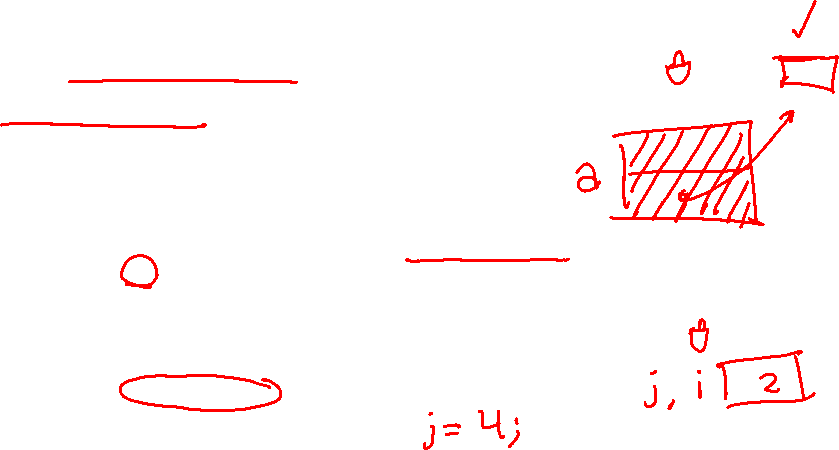 a
j, i 2
j = 4;